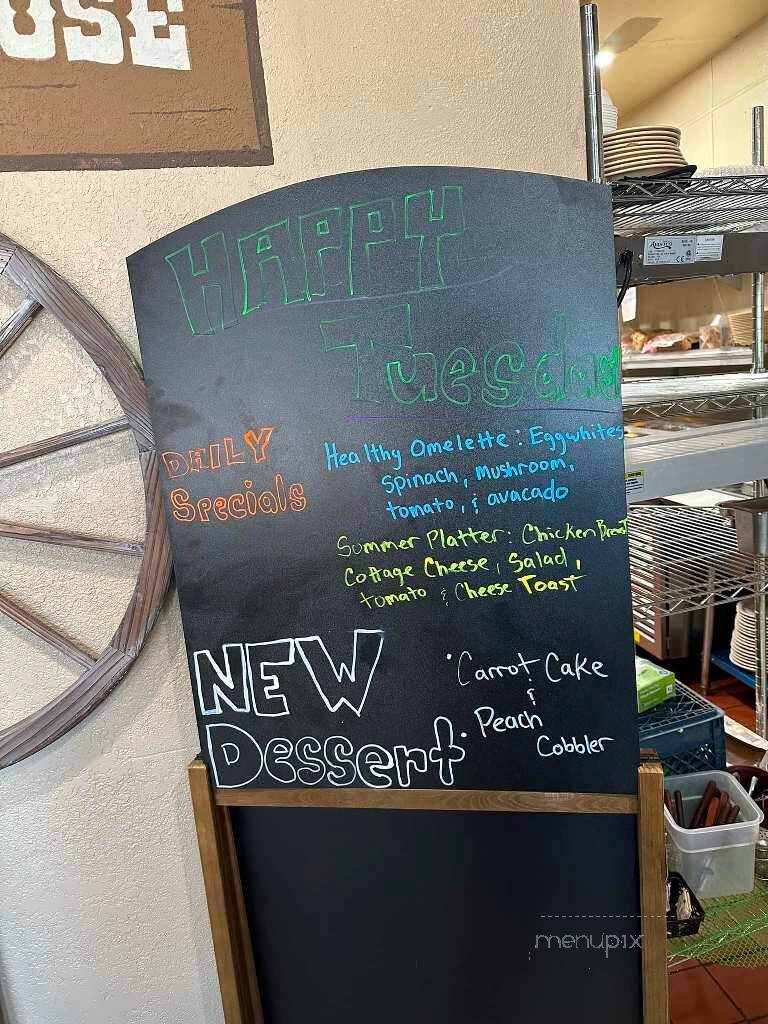 OUSE
HAPPY
Tuesday
DAILY
Specials
Healthy Omelette: Eggwhites
spinach, mushroom,
tomato, & avacado
Summer Platter: Chicken Breast
Cottage Cheese, Salad,
tomato & Cheese Toast
NEW
Dessert
• Carrot Cake
&
• Peach
Cobbler
menupix